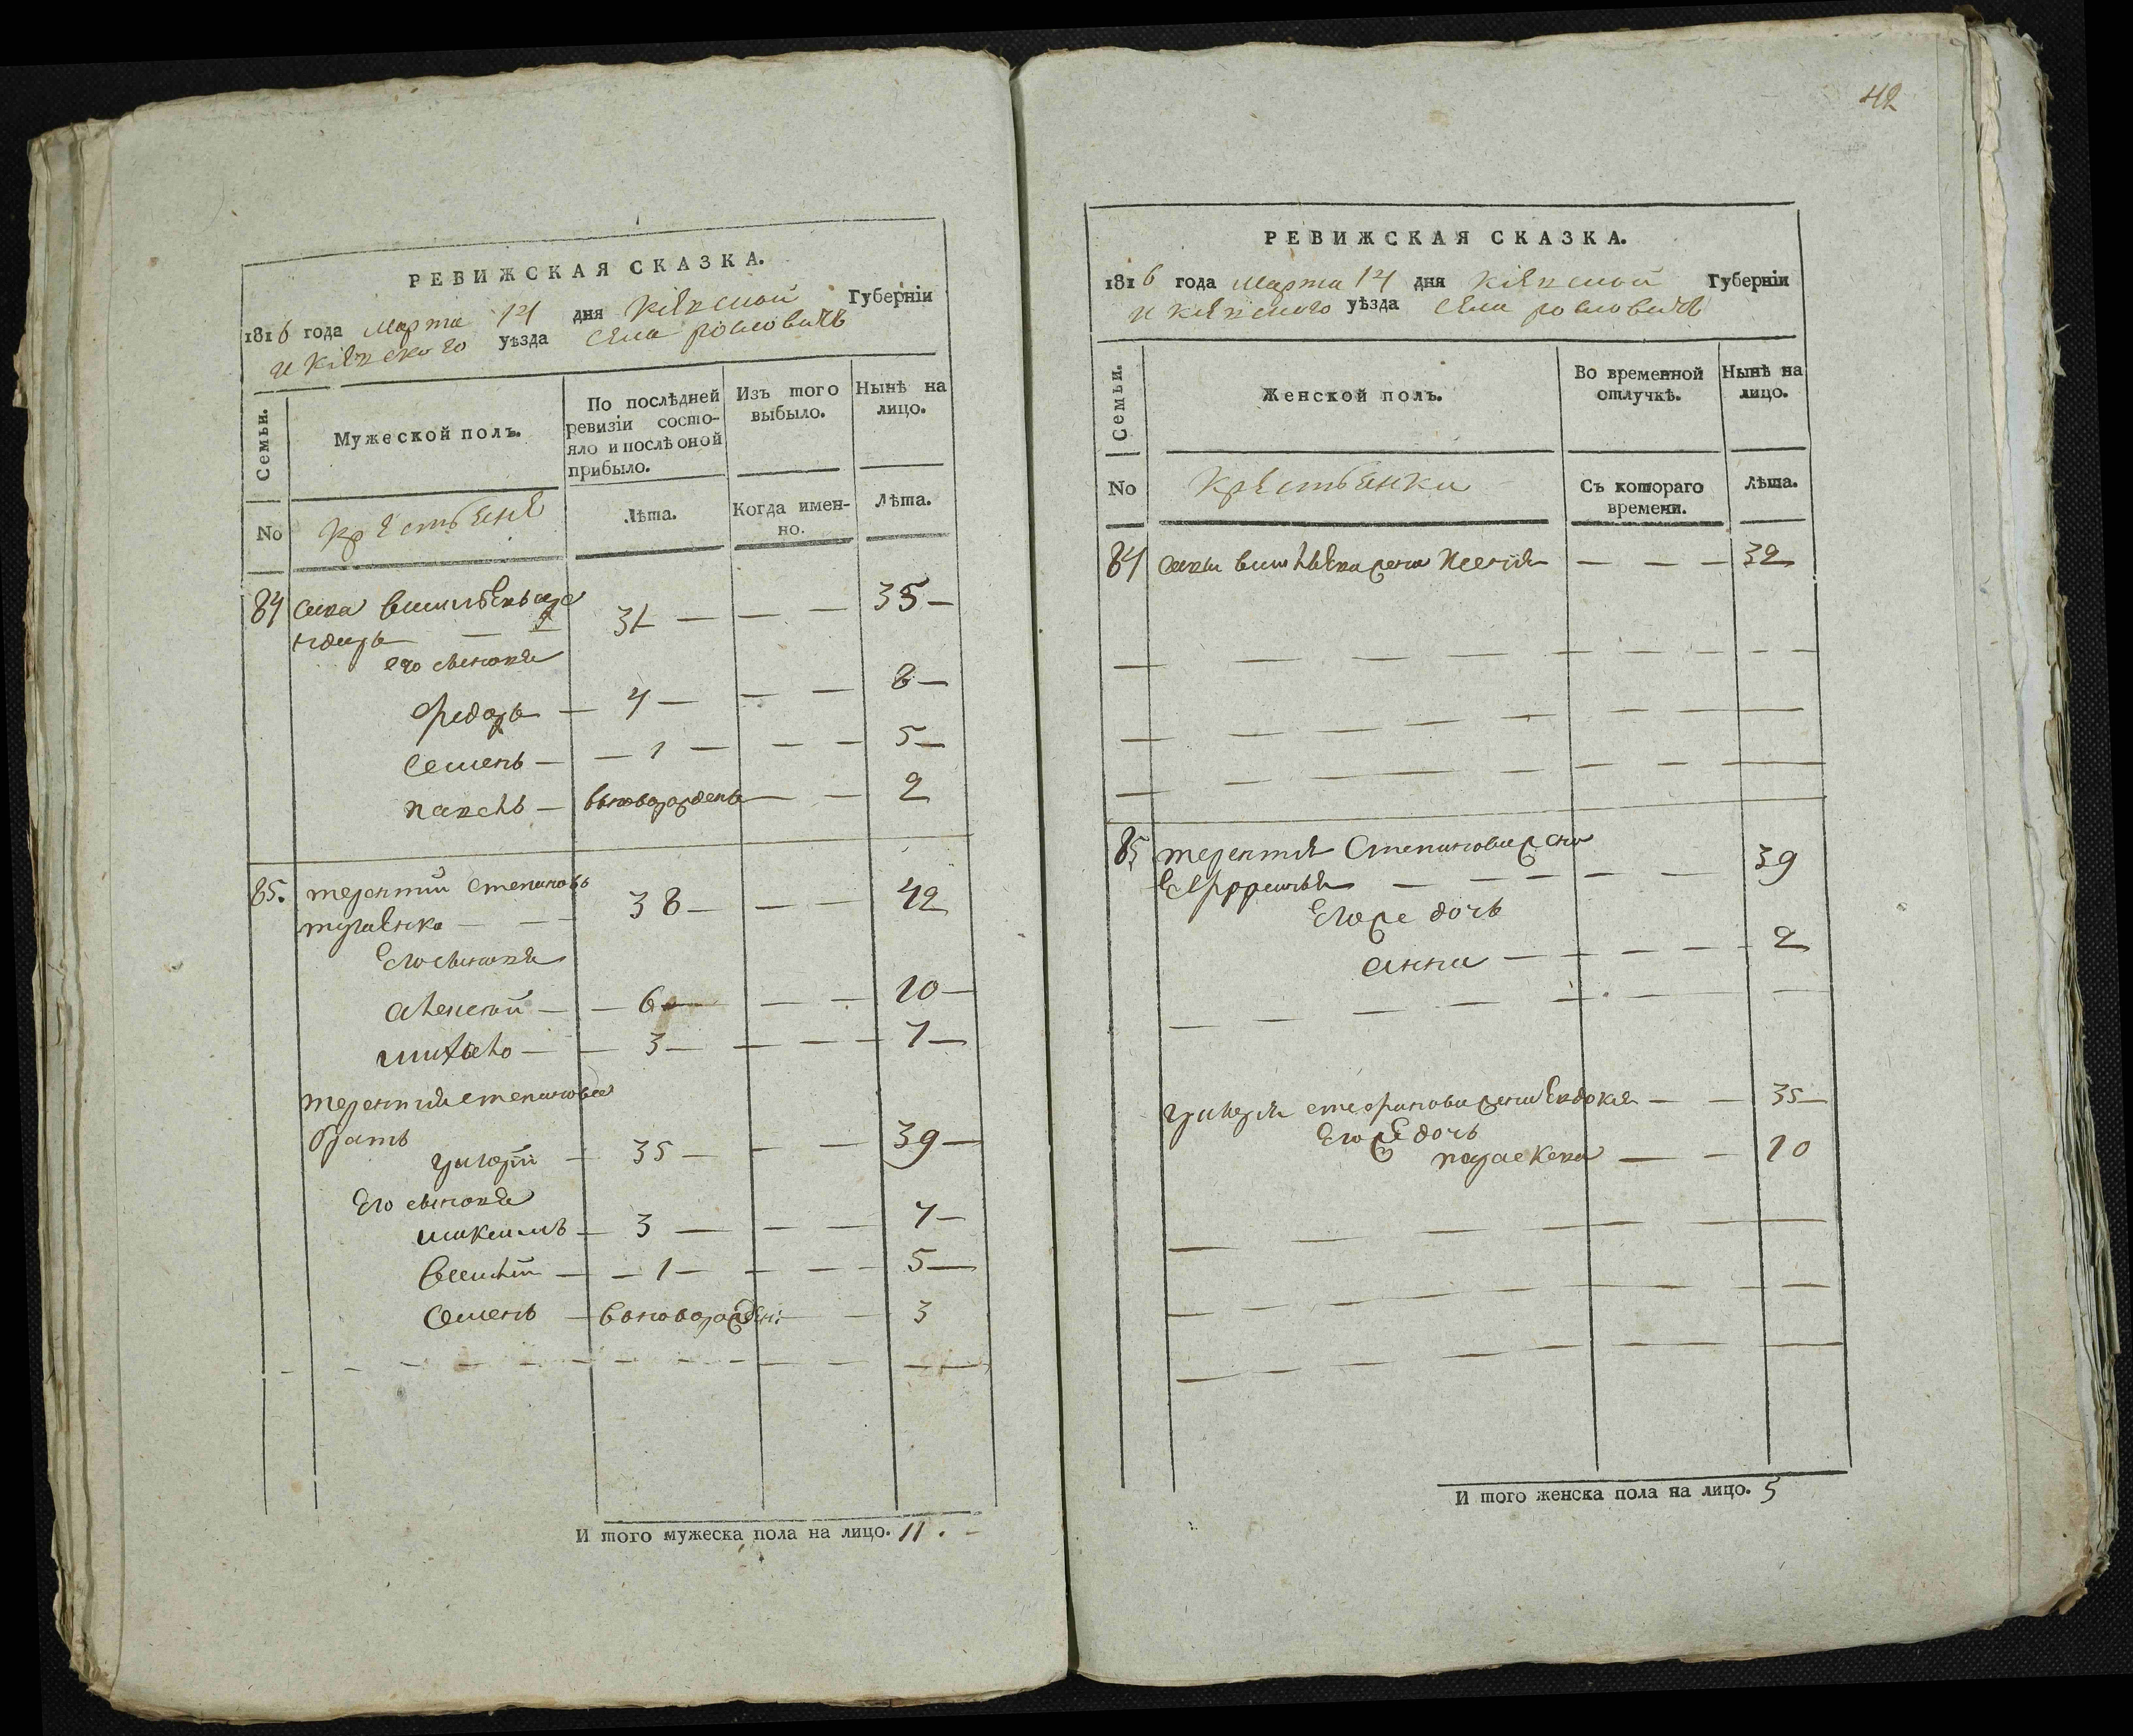 РЕВИЖСКАЯ СКАЗКА.
1816 года марта 14 дня Кіевской Губерніи
и Кіевского уѣзда села
Семьи.
Мужеской полъ.
По послѣдней ревизіи состо-
яло и послѣ оной
прибыло.
Изъ того
выбыло.
Нынѣ на
лицо.
No
крестьяне
Лѣта.
Когда имен-
но.
Лѣта.
84 сава
31 — — — 35 —
его сыновя
федоръ — 4 — — — 8 —
Семенъ — — 1 — — — 5 —
павелъ — вновороженъ — — 2
85. терентий степановъ
38 — — — 42
Его сыновя
алексей — — 6 — — — 10 —
михаело — — 3 — — — — 7 —
терентия степанова
братъ
григорий — 35 — — — 39 —
Его сыновя
максимъ — 3 — — — 7 —
василий — — 1 — — — — 5 —
Семенъ — вноворожден: — — 3
И того мужеска пола на лицо. 11. —
42
РЕВИЖСКАЯ СКАЗКА.
1816 года марта 14 дня Кіевской Губерніи
и Кіевского уѣзда села
Семьи.
Женской полъ.
Во временной
отлучкѣ.
Нынѣ на
лицо.
No
крестьянки
Съ котораго
времени.
Лѣта.
84 савы жена Ксения — — — 32
85 терентия Степанова жена
— — — — — — 39
Его же дочь
анна — — — — — 2
григория степанова жена Евдокия — — 35 —
Его же дочь
параскева — — 10
И того женска пола на лицо. 5